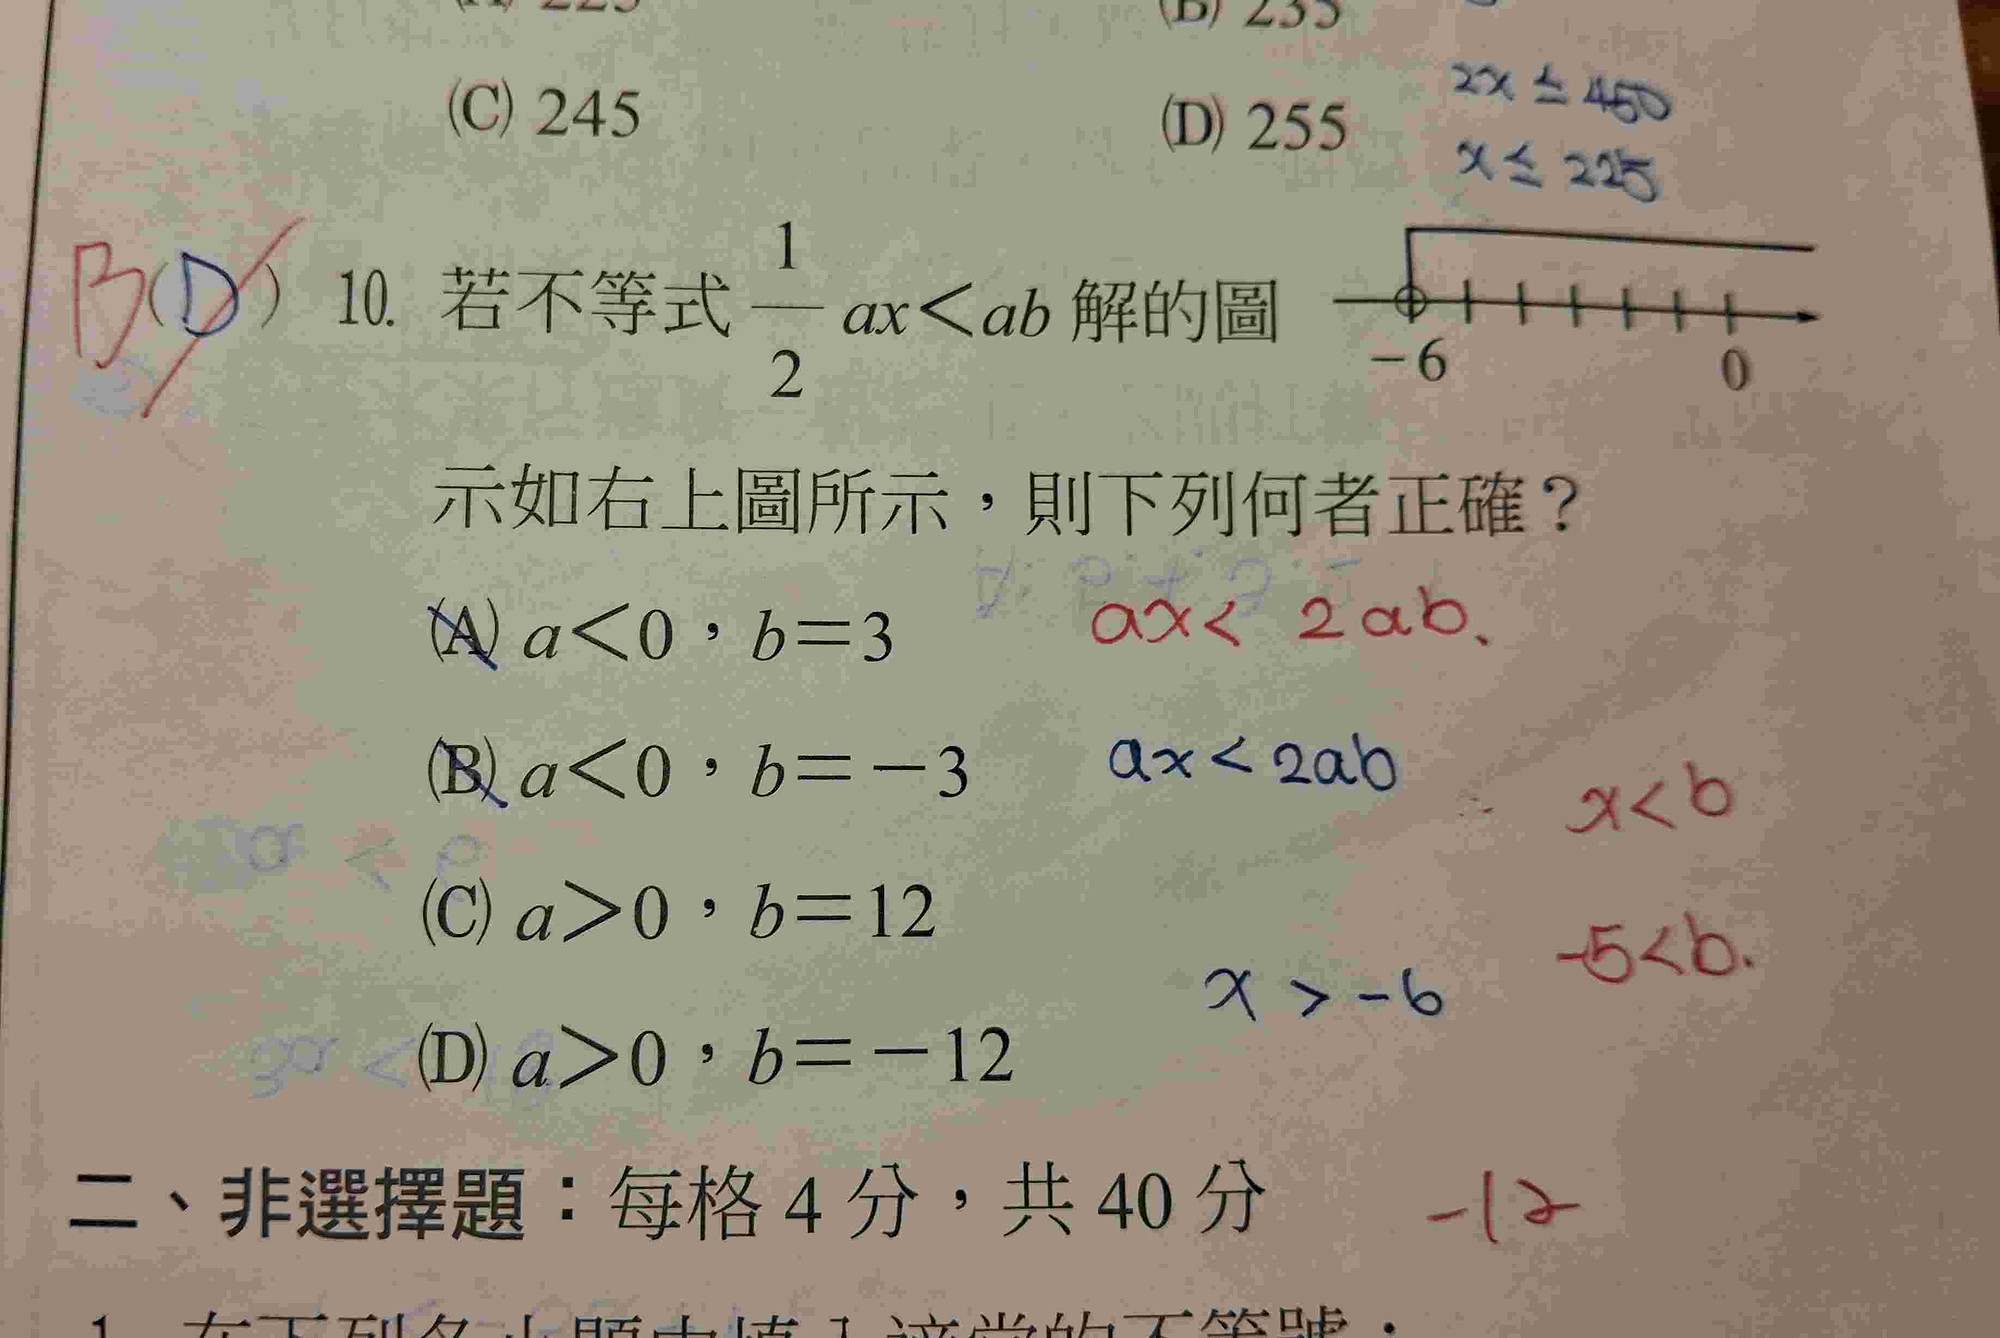 (B) 235
(C) 245
(D) 255
2x ≤ 450
x ≤ 225
B(D) 10. 若不等式 1/2 ax＜ab 解的圖
-6 0
示如右上圖所示，則下列何者正確？
(A) a＜0，b＝3
ax< 2ab.
(B) a＜0，b＝－3
ax<2ab
x<b
(C) a＞0，b＝12
-5<b.
x > -6
(D) a＞0，b＝－12
二、非選擇題：每格 4 分，共 40 分
-12